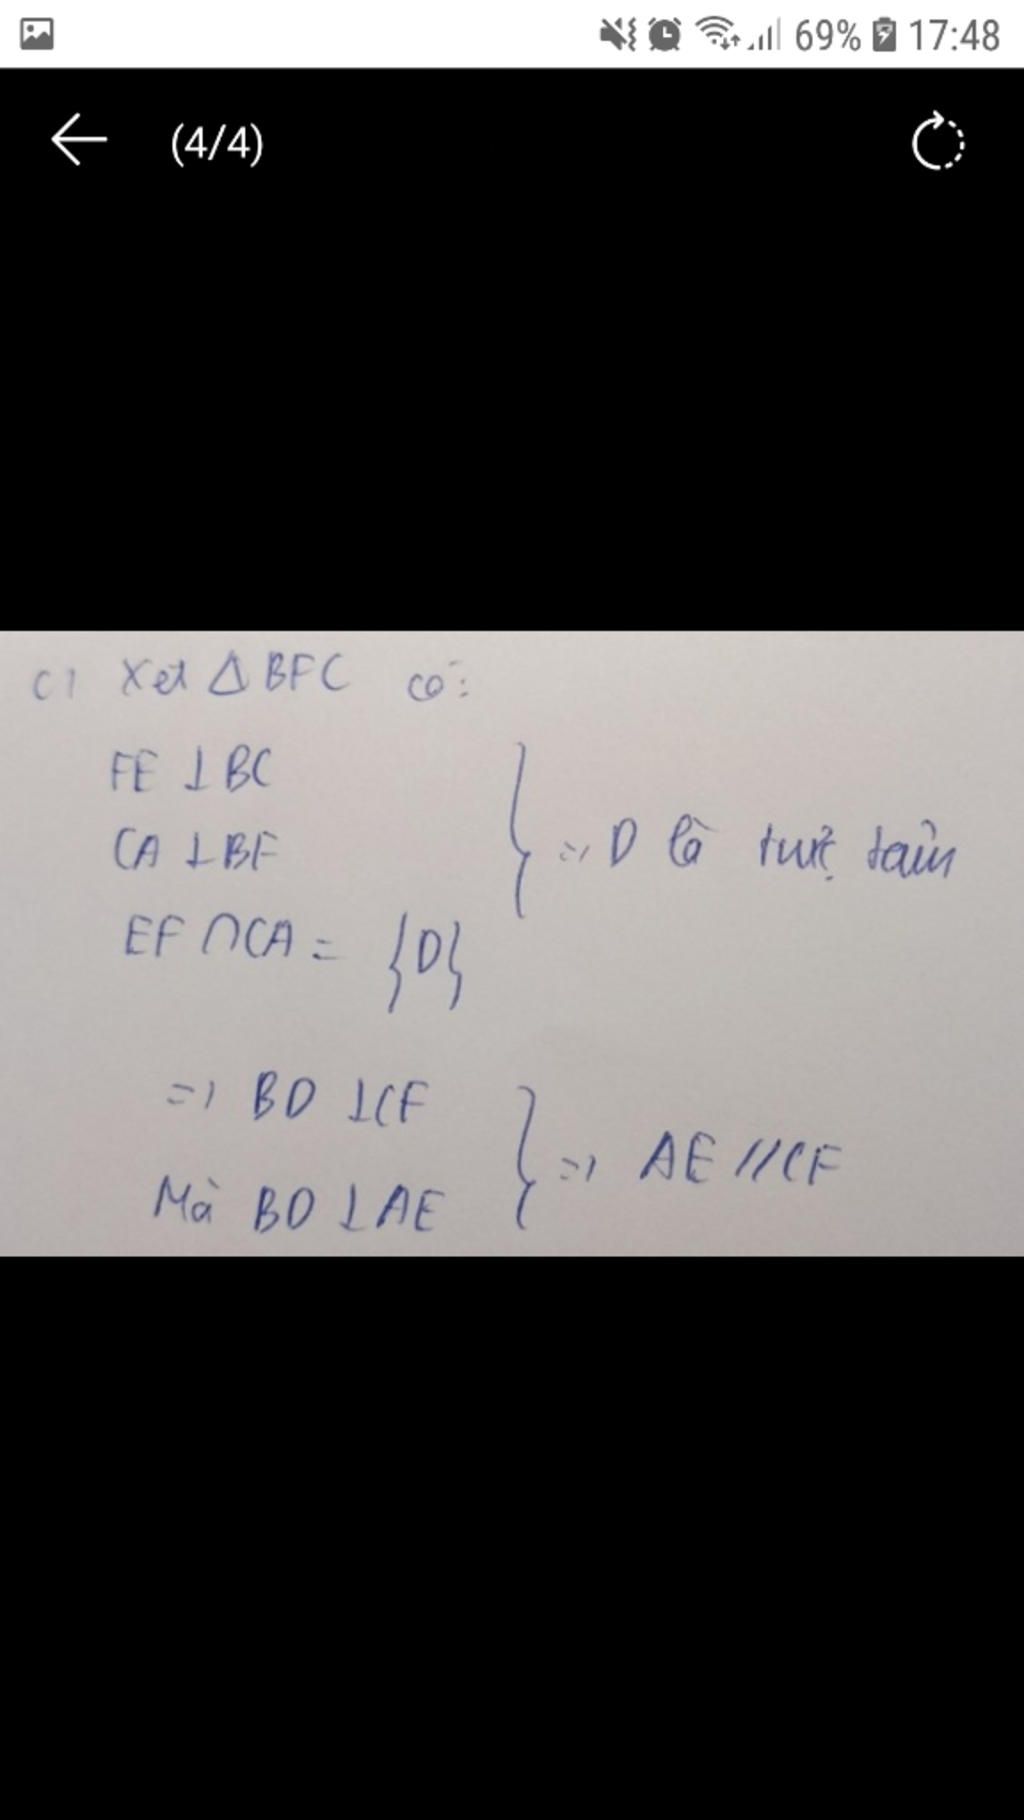 69% 17:48
(4/4)
c) Xét Δ BFC có:
FE ⊥ BC
CA ⊥ BF
EF ∩ CA = {D}
=> D là trực tâm
=> BD ⊥ CF
Mà BD ⊥ AE
=> AE // CF